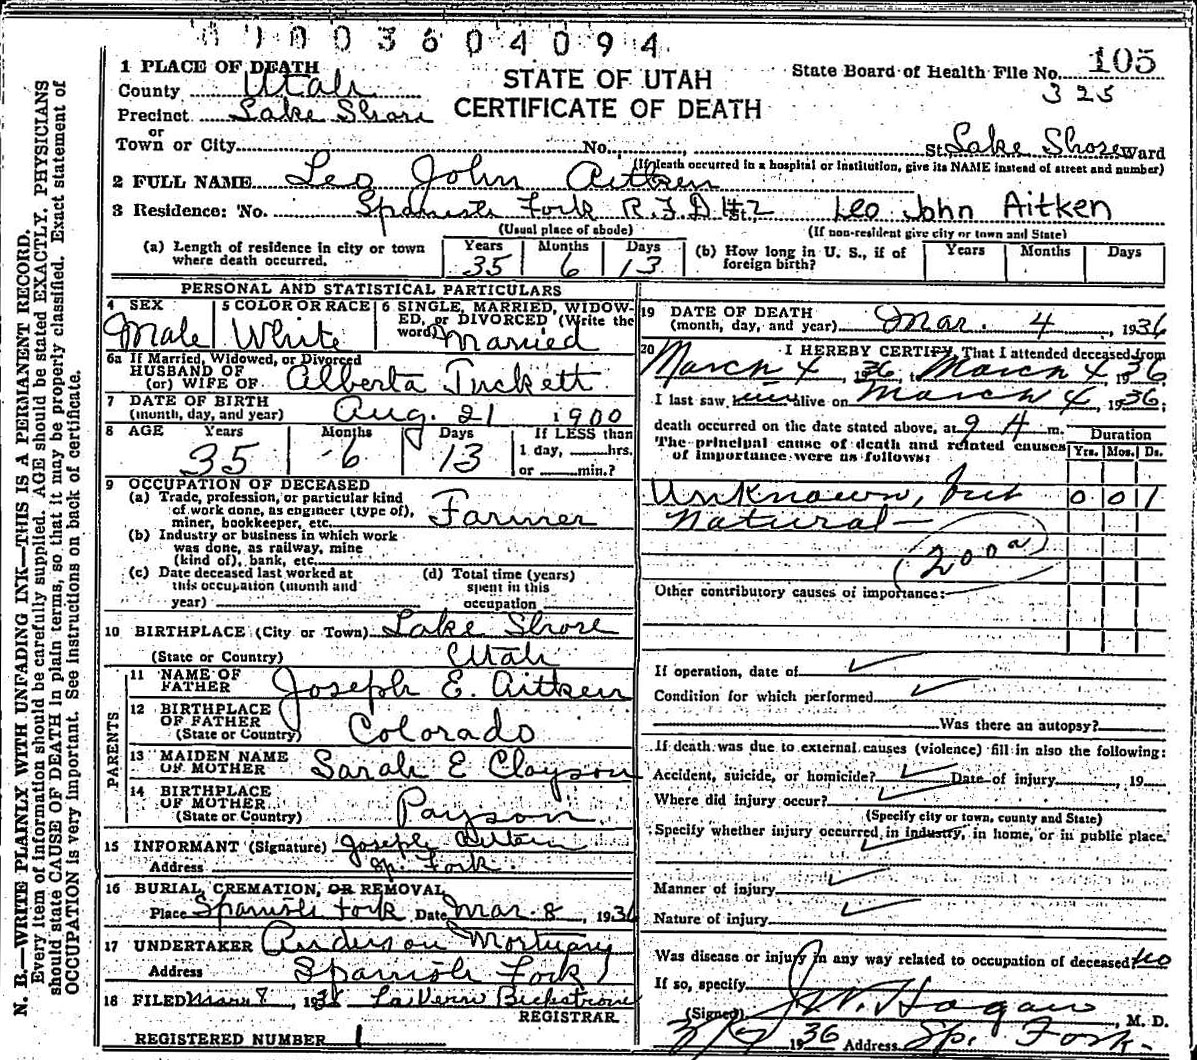 0 1 0 0 3 6 0 4 0 9 4
1 PLACE OF DEATH
County Utah
Precinct Lake Shore
or
Town or City No. St. Lake Shore Ward
STATE OF UTAH
CERTIFICATE OF DEATH
State Board of Health File No. 105
325
(If death occurred in a hospital or institution, give its NAME instead of street and number)
2 FULL NAME Leo John Aitken
3 Residence: No. Spanish Fork R.F.D #2 St. Leo John Aitken
(Usual place of abode) (If non-resident give city or town and State)
(a) Length of residence in city or town where death occurred. Years 35 Months 6 Days 13
(b) How long in U. S., if of foreign birth? Years Months Days
PERSONAL AND STATISTICAL PARTICULARS
4 SEX Male
5 COLOR OR RACE White
6 SINGLE, MARRIED, WIDOWED, or DIVORCED (Write the word) Married
6a If Married, Widowed, or Divorced
HUSBAND OF
(or) WIFE OF Alberta Tuckett
7 DATE OF BIRTH
(month, day, and year) Aug. 21 1900
8 AGE Years 35 Months 6 Days 13 If LESS than 1 day, hrs. or min.?
9 OCCUPATION OF DECEASED
(a) Trade, profession, or particular kind of work done, as engineer (type of), miner, bookkeeper, etc. Farmer
(b) Industry or business in which work was done, as railway, mine (kind of), bank, etc.
(c) Date deceased last worked at this occupation (month and year)
(d) Total time (years) spent in this occupation
10 BIRTHPLACE (City or Town) Lake Shore
(State or Country) Utah
PARENTS
11 NAME OF FATHER Joseph E. Aitken
12 BIRTHPLACE OF FATHER
(State or Country) Colorado
13 MAIDEN NAME OF MOTHER Sarah E Clayson
14 BIRTHPLACE OF MOTHER
(State or Country) Payson
15 INFORMANT (Signature) Joseph Aitken
Address Sp. Fork.
16 BURIAL, CREMATION, OR REMOVAL
Place Spanish Fork Date Mar 8, 1936
17 UNDERTAKER Anderson Mortuary
Address Spanish Fork
18 FILED Mar 8, 1936 LaVern Beckstrom
REGISTRAR
REGISTERED NUMBER 1
19 DATE OF DEATH
(month, day, and year) Mar. 4, 1936
20 I HEREBY CERTIFY, That I attended deceased from
March 4, 1936, to March 4, 1936
I last saw alive on March 4, 1936;
death occurred on the date stated above, at 9 A m.
The principal cause of death and related causes of importance were as follows:
Duration
Yrs. Mos. Ds.
Unknown, but 0 0 1
Natural —
200a
Other contributory causes of importance:
If operation, date of
Condition for which performed
Was there an autopsy?
If death was due to external causes (violence) fill in also the following:
Accident, suicide, or homicide? Date of injury , 19
Where did injury occur?
(Specify city or town, county and State)
Specify whether injury occurred in industry, in home, or in public place.
Manner of injury
Nature of injury
Was disease or injury in any way related to occupation of deceased? No
If so, specify
(Signed) J. W. Hagan, M. D.
3/7 1936 Address Sp. Fork-
N. B.—WRITE PLAINLY WITH UNFADING INK—THIS IS A PERMANENT RECORD.
Every item of information should be carefully supplied. AGE should be stated EXACTLY. PHYSICIANS
should state CAUSE OF DEATH in plain terms, so that it may be properly classified. Exact statement of
OCCUPATION is very important. See instructions on back of certificate.